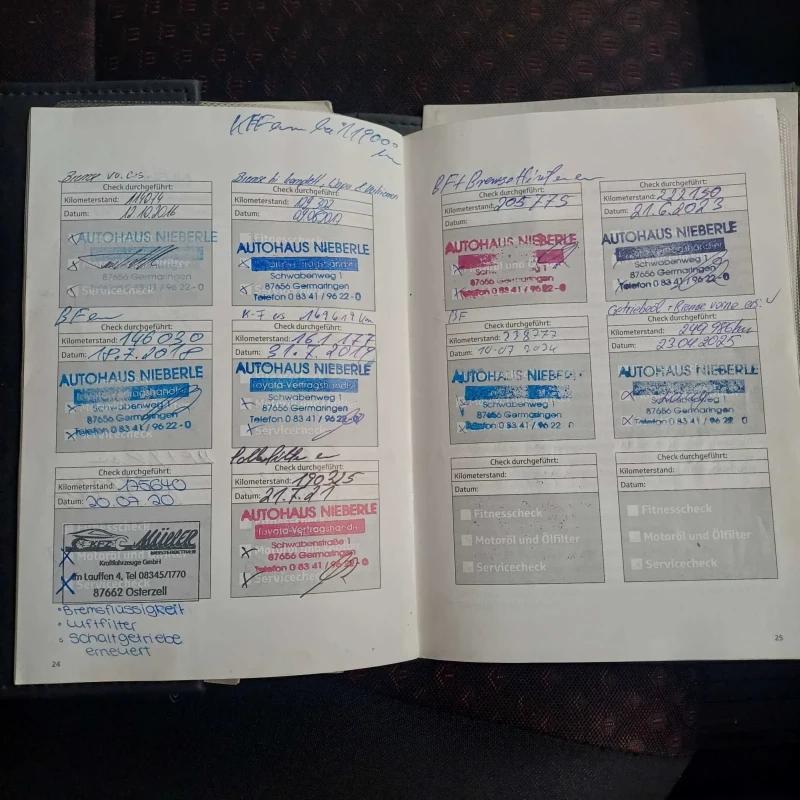 Check durchgeführt:
Kilometerstand: 114014
Datum: 12.10.2016
AUTOHAUS NIEBERLE
Schwabenweg 1
87656 Germaringen
Telefon 0 83 41 / 96 22 - 0
Servicecheck
Check durchgeführt:
Kilometerstand: 129 302
Datum:
AUTOHAUS NIEBERLE
Schwabenweg 1
87656 Germaringen
Telefon 0 83 41 / 96 22 - 0
Servicecheck
BF
Check durchgeführt:
Kilometerstand: 146 030
Datum: 18.7.2018
AUTOHAUS NIEBERLE
Schwabenweg 1
87656 Germaringen
Telefon 0 83 41 / 96 22 - 0
Check durchgeführt:
Kilometerstand: 161 177
Datum: 31.7.2019
AUTOHAUS NIEBERLE
Toyota-Vertragshändler
Schwabenweg 1
87656 Germaringen
Telefon 0 83 41 / 96 22 - 0
Servicecheck
Check durchgeführt:
Kilometerstand: 175640
Datum: 20.07.20
KFZ Müller
MEISTERBETRIEB
Kraftfahrzeuge GmbH
Im Lauffen 4, Tel 08345/1770
87662 Osterzell
• Bremsflüssigkeit
• Luftfilter
• Schaltgetriebe
erneuert
24
Pollenfilter er
Check durchgeführt:
Kilometerstand: 190325
Datum: 21.7.21
AUTOHAUS NIEBERLE
Toyota-Vertragshändler
Schwabenstraße 1
87656 Germaringen
Telefon 0 83 41 / 96 22 - 0
BF+
Check durchgeführt:
Kilometerstand: 205775
Datum:
AUTOHAUS NIEBERLE
87656 Germaringen
Telefon 0 83 41 / 96 22 - 0
Check durchgeführt:
Kilometerstand:
Datum: 21.6.2023
AUTOHAUS NIEBERLE
Schwabenweg 1
87656 Germaringen
Telefon 0 83 41 / 96 22 - 0
BF
Check durchgeführt:
Kilometerstand:
Datum:
AUTOHAUS NIEBERLE
Schwabenweg 1
87656 Germaringen
Telefon 0 83 41 / 96 22 - 0
Getriebeöl + Bremse vorne
Check durchgeführt:
Kilometerstand:
Datum: 23.04.2025
AUTOHAUS NIEBERLE
87656 Germaringen
Telefon 0 83 41 / 96 22 - 0
Check durchgeführt:
Kilometerstand:
Datum:
Fitnesscheck
Motoröl und Ölfilter
Servicecheck
Check durchgeführt:
Kilometerstand:
Datum:
Fitnesscheck
Motoröl und Ölfilter
Servicecheck
25